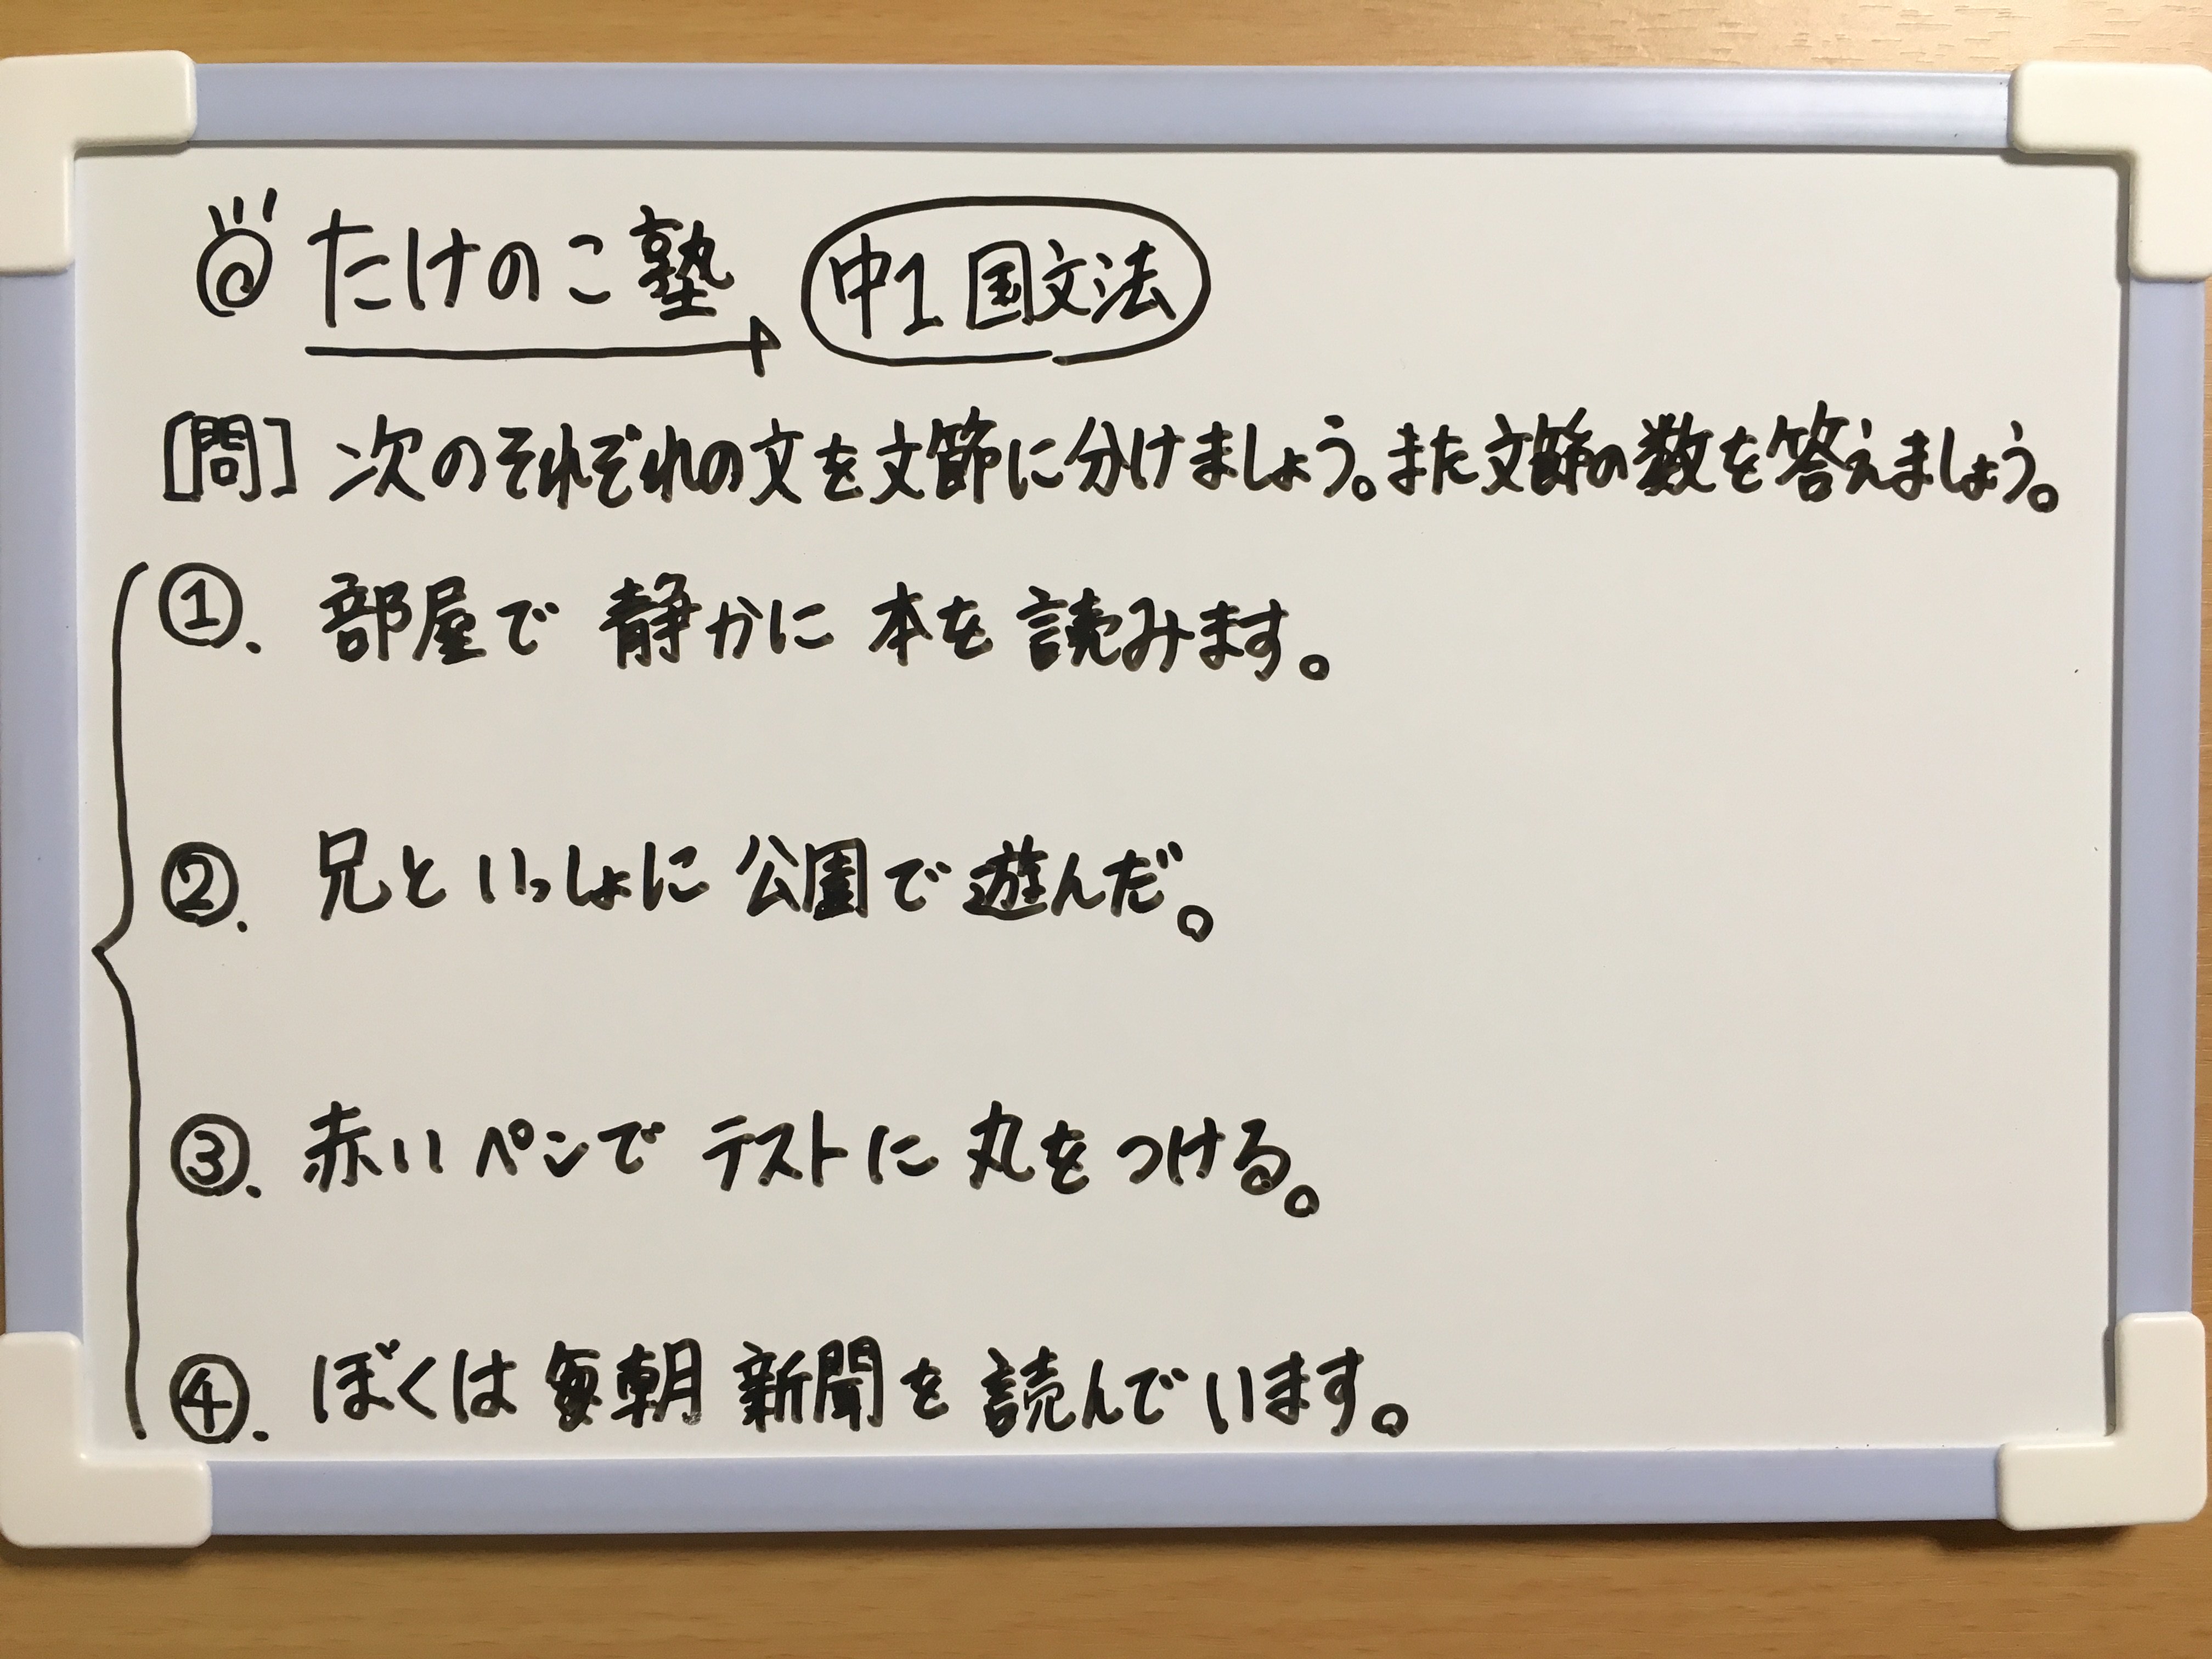 たけのこ塾 中1 国文法
[問] 次のそれぞれの文を文節に分けましょう。また文節の数を答えましょう。
①. 部屋で 静かに 本を 読みます。
②. 兄と いっしょに 公園で 遊んだ。
③. 赤い ペンで テストに 丸を つける。
④. ぼくは 毎朝 新聞を 読んで います。